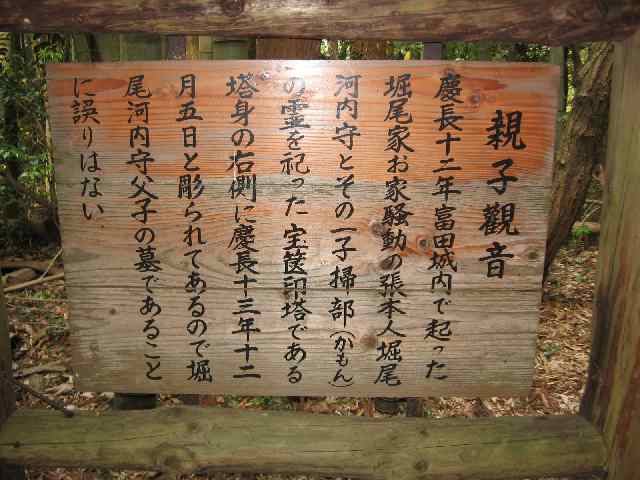 親子觀音
慶長十二年富田城内で起った
堀尾家お家騒動の張本人堀尾
河内守とその一子掃部(かもん)
の霊を祀った宝篋印塔である
塔身の右側に慶長十三年十二
月五日と彫られてあるので堀
尾河内守父子の墓であること
に誤りはない